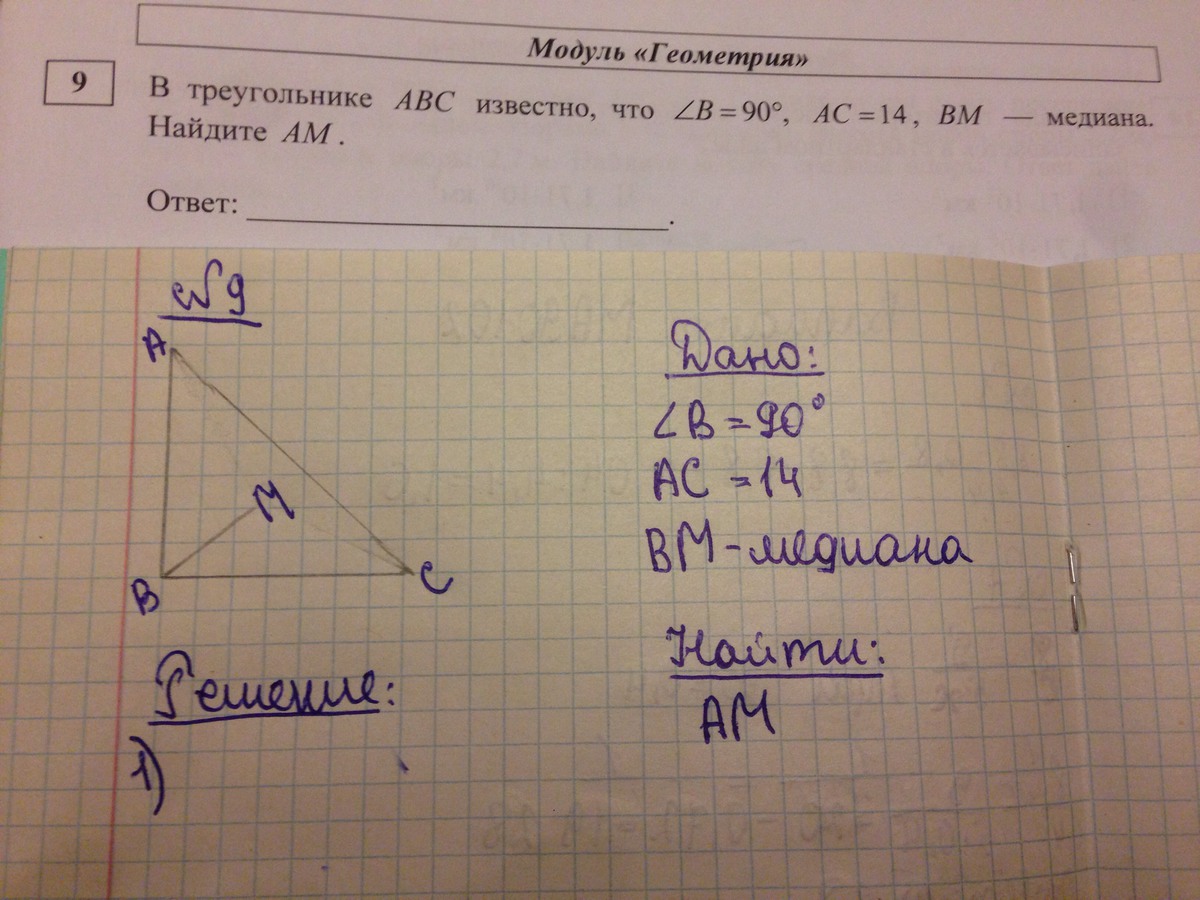 Модуль «Геометрия»
9
В треугольнике ABC известно, что ∠B = 90°, AC = 14, BM — медиана.
Найдите AM.
Ответ: ____________.
№9
A
M
B
C
Дано:
∠B = 90°
AC = 14
BM - медиана
Найти:
AM
Решение:
1)